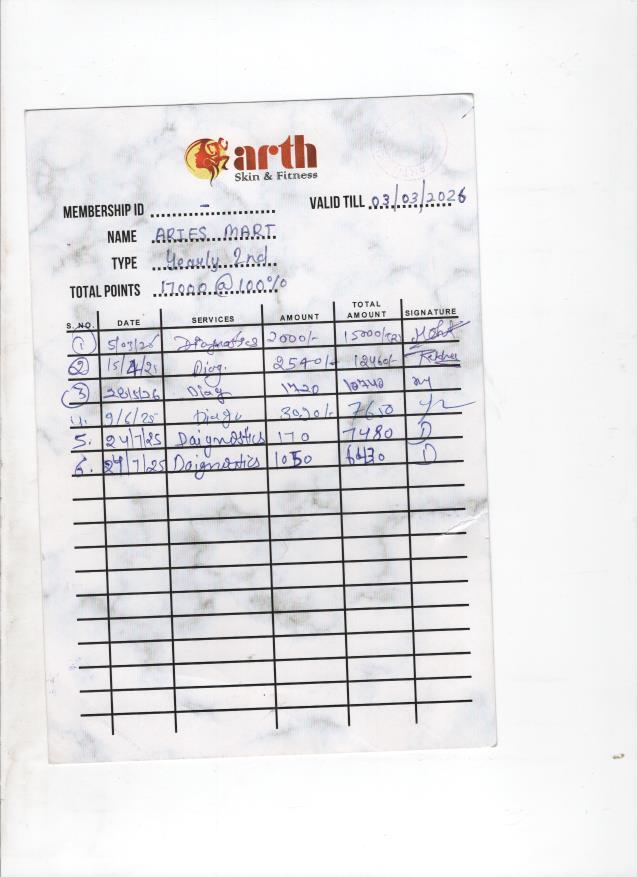 arth
Skin & Fitness
MEMBERSHIP ID - VALID TILL 03/03/2026
NAME ARIES MART
TYPE Yearly 2nd
TOTAL POINTS 17000 @ 100%
S. NO. DATE SERVICES AMOUNT TOTAL AMOUNT SIGNATURE
1 5/03/25 2000/- 15000/-
2 15/4/25 Diag. 2540/- 12460/-
3 Diag 1720 10740
9/6/25 7650
5. 24/7/25 Daignostics 170 7480 D
6. 29/7/25 Daignostics 1050 6430 D